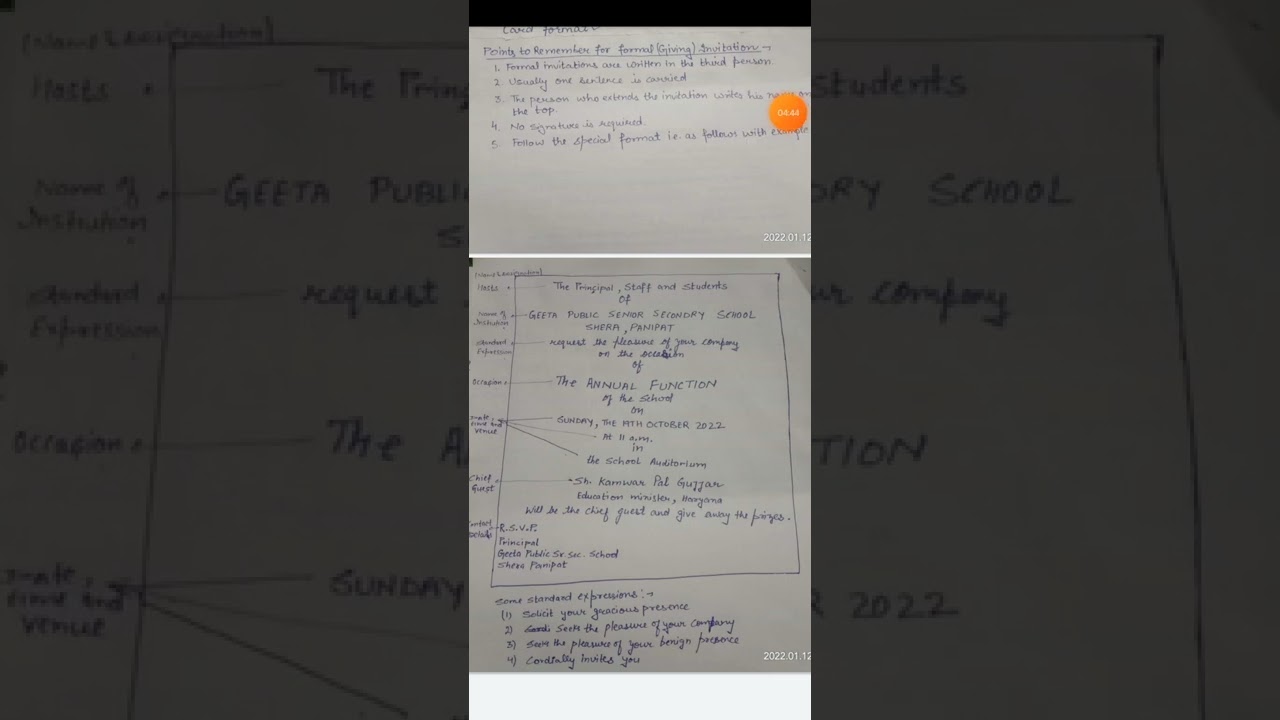 Card format
Points to Remember for formal (Giving) Invitation →
1. Formal invitations are written in the third person.
2. Usually one sentence is carried
3. The person who extends the invitation writes his name on
the top.
04:44
4. No signature is required.
5. Follow the special format i.e. as follows with example
2022.01.12
(Name & Designation)
Hosts
The Principal, Staff and Students
Of
Name of
Institution
GEETA PUBLIC SENIOR SECONDRY SCHOOL
SHERA, PANIPAT
Standard
Expression
request the pleasure of your company
on the occasion
of
Occasion
The ANNUAL FUNCTION
of the School
on
venue
SUNDAY, THE 19TH OCTOBER 2022
At 11 a.m.
in
the School Auditorium
Chief
Guest
Sh. Kamwar Pal Gujjar
Education minister, Haryana
Will be the chief guest and give away the prizes.
Contact
Details
R.S.V.P.
Principal
Geeta Public Sr. Sec. School
Shera Panipat
Some standard expressions :→
(1) Solicit your gracious presence
2) Seek the pleasure of your company
3) Seek the pleasure of your benign presence
4) Cordially invites you
2022.01.12